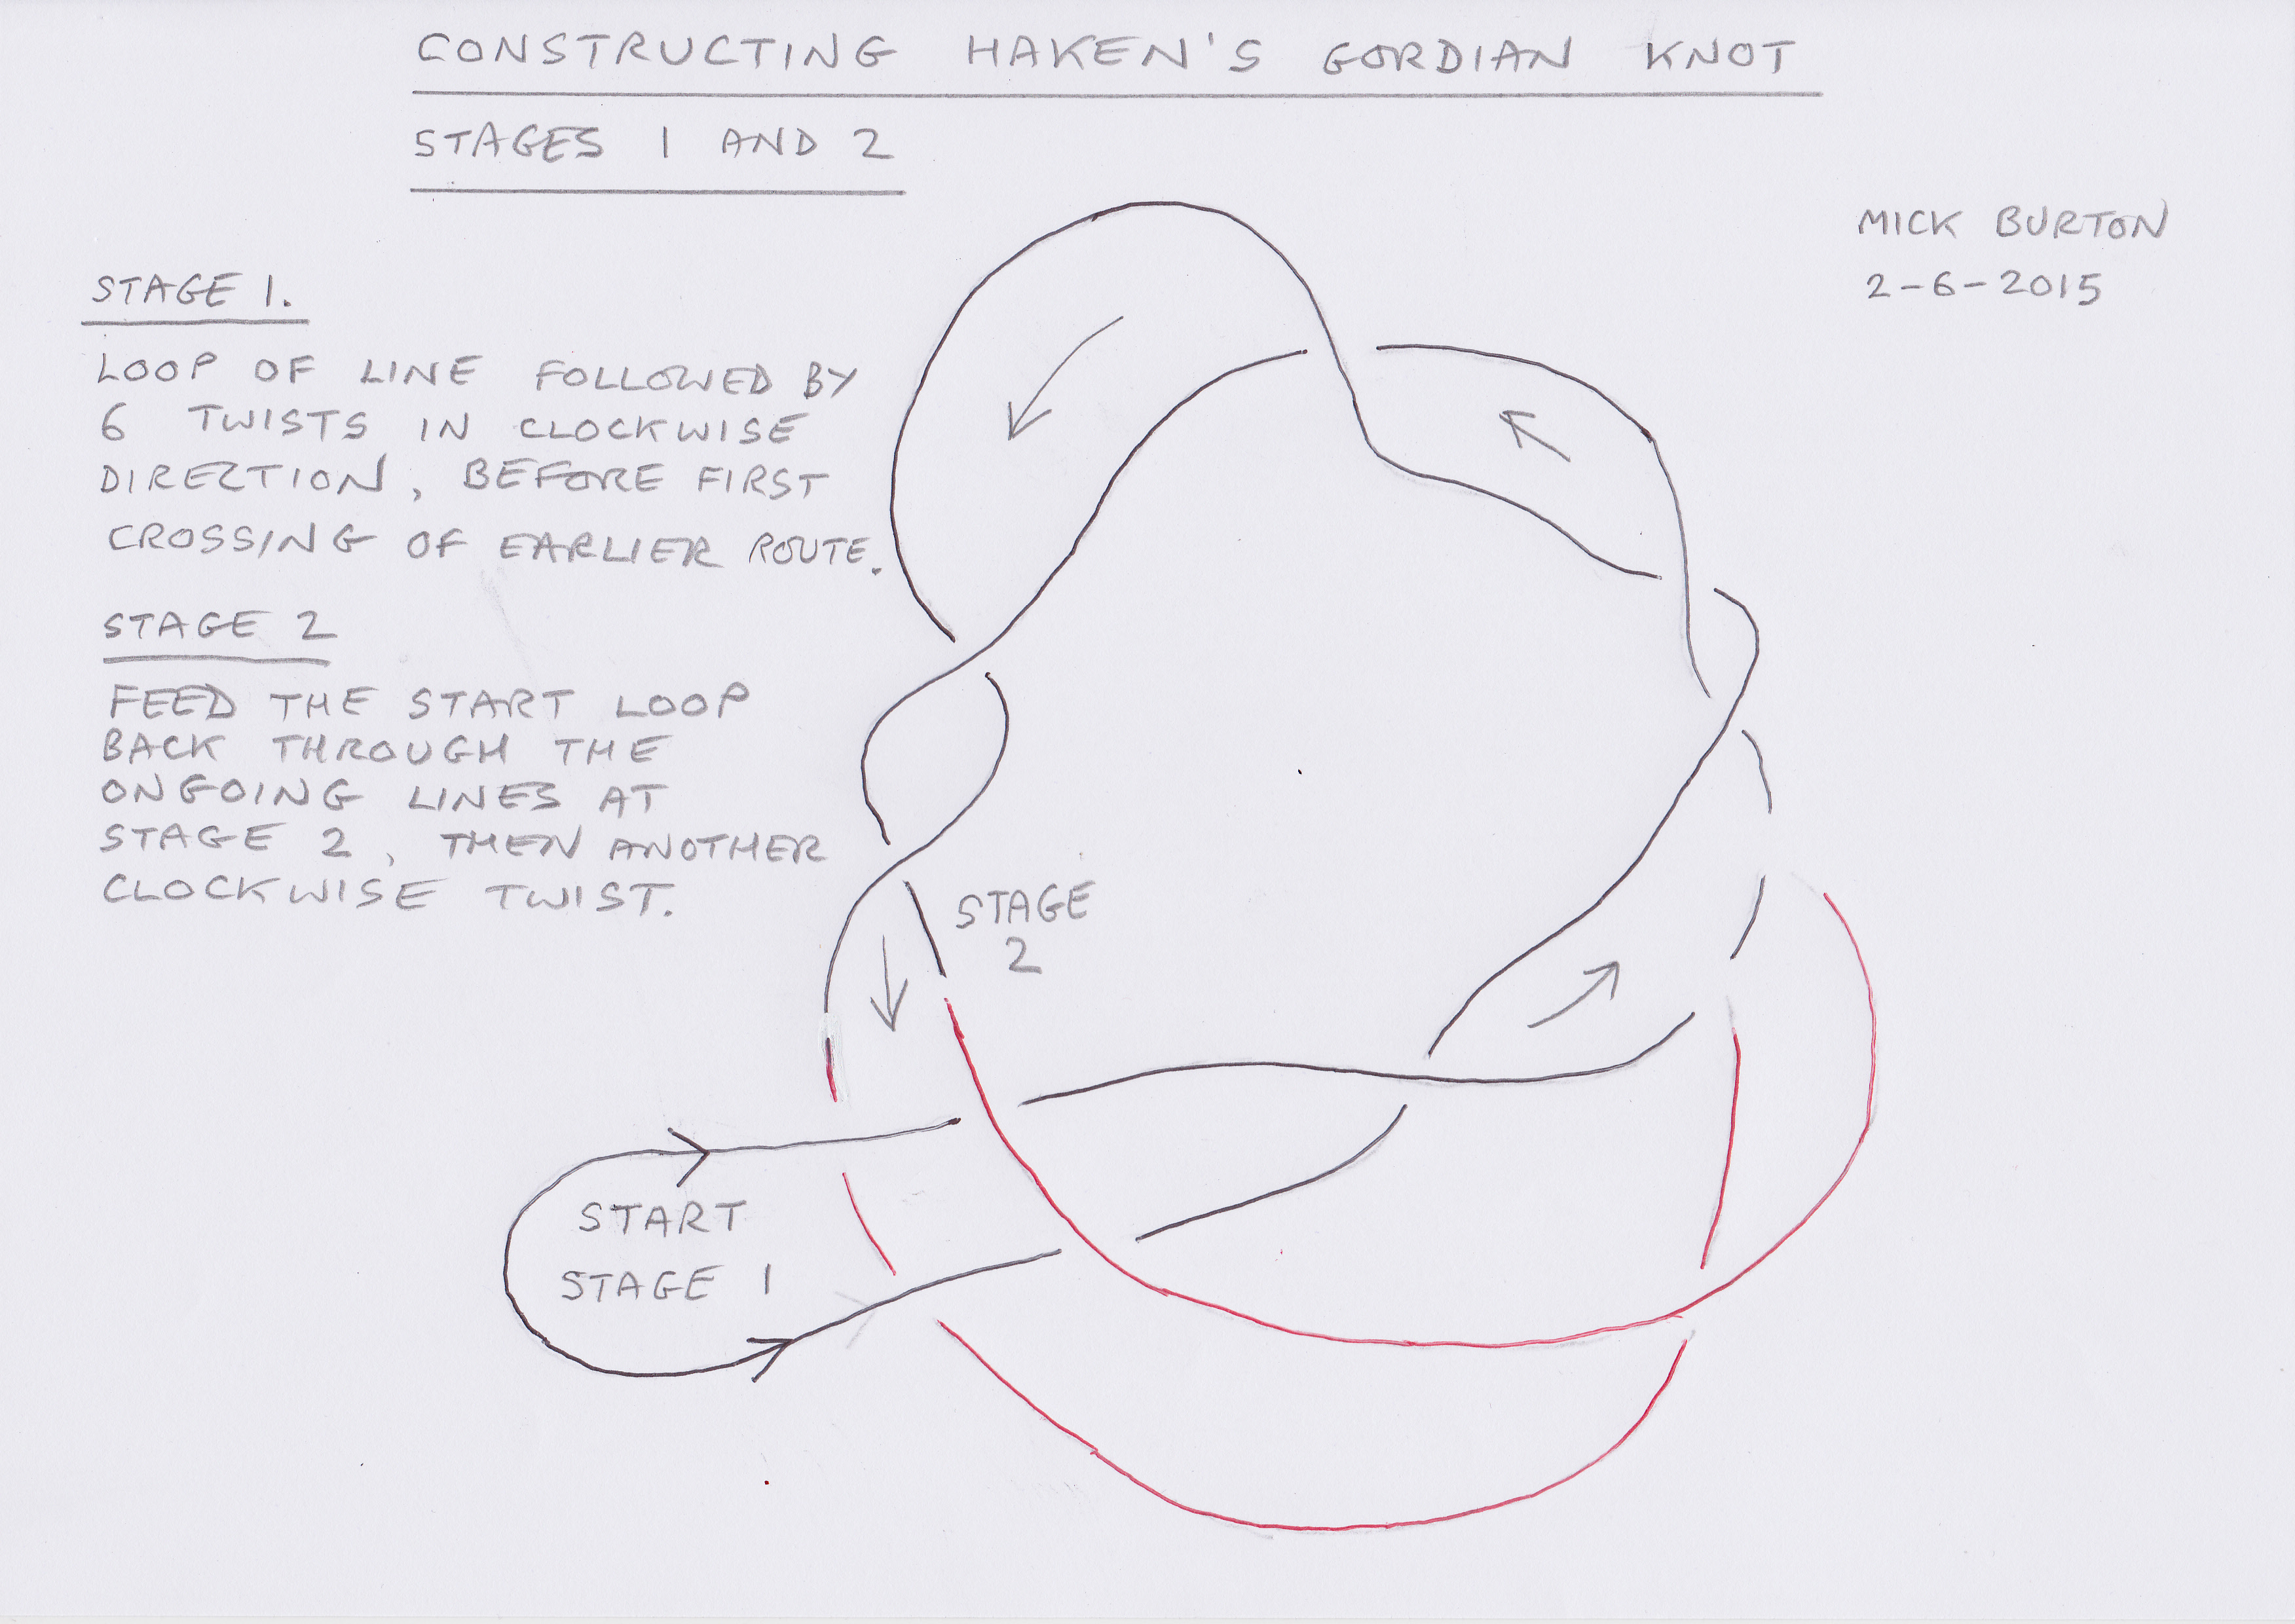 CONSTRUCTING HAKEN'S GORDIAN KNOT
STAGES 1 AND 2
MICK BURTON
2-6-2015
STAGE 1.
LOOP OF LINE FOLLOWED BY
6 TWISTS IN CLOCKWISE
DIRECTION, BEFORE FIRST
CROSSING OF EARLIER ROUTE.
STAGE 2
FEED THE START LOOP
BACK THROUGH THE
ONGOING LINES AT
STAGE 2, THEN ANOTHER
CLOCKWISE TWIST.
STAGE
2
START
STAGE 1